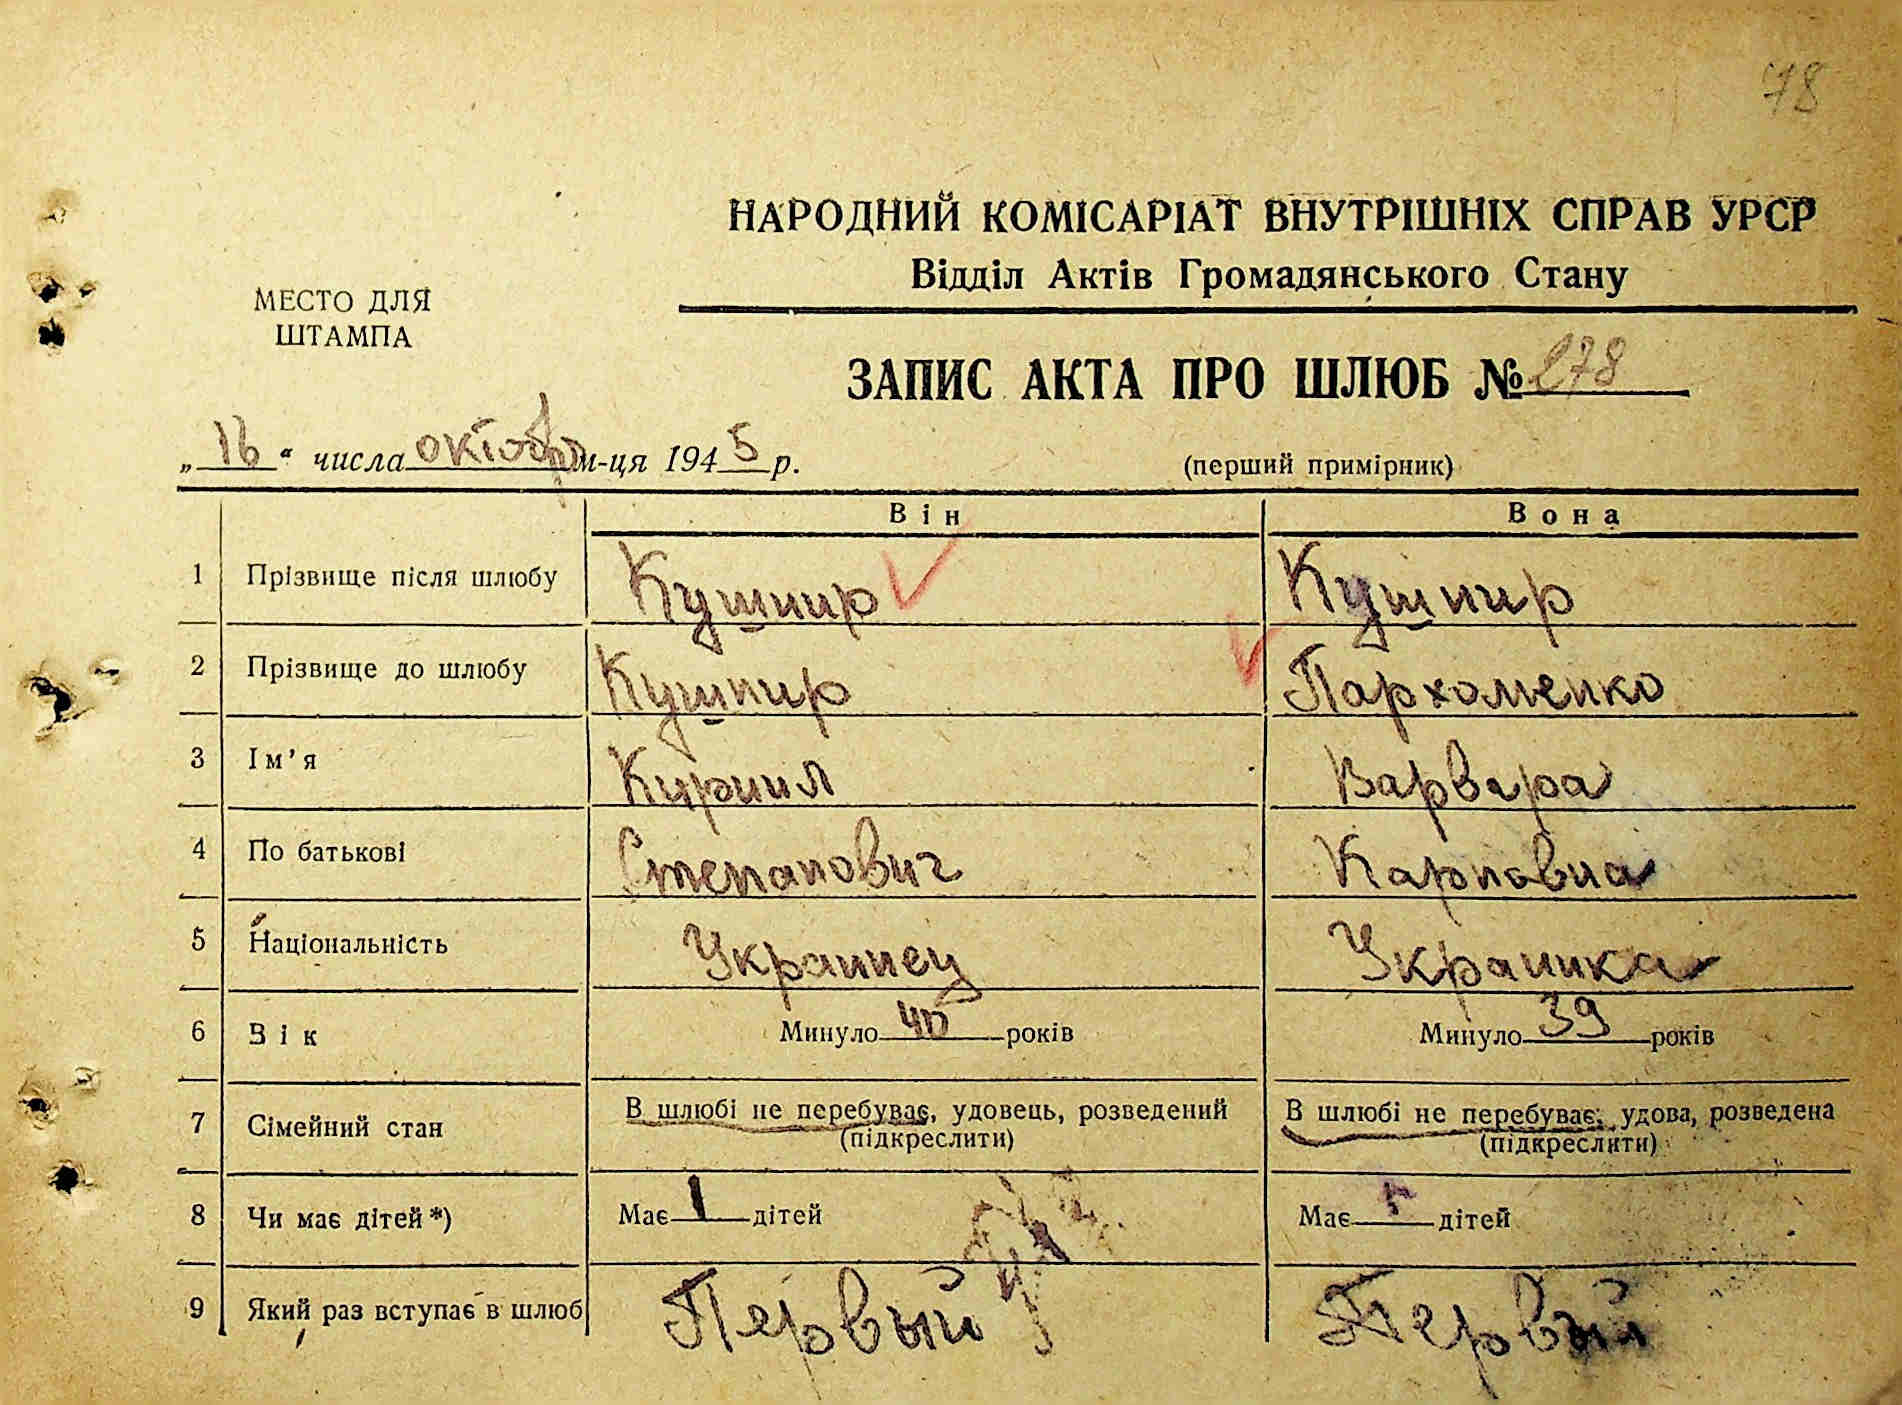 78
НАРОДНИЙ КОМІСАРІАТ ВНУТРІШНІХ СПРАВ УРСР
Відділ Актів Громадянського Стану
МЕСТО ДЛЯ
ШТАМПА
ЗАПИС АКТА ПРО ШЛЮБ № 278
„16“ числа октобр м-ця 1945 р. (перший примірник)
Він Вона
1 Прізвище після шлюбу Кушнир Кушнир
2 Прізвище до шлюбу Кушнир Пархоменко
3 Ім’я Кириил Варвара
4 По батькові Степанович Карповна
5 Національність Украинец Украинка
6 Вік Минуло 40 років Минуло 39 років
7 Сімейний стан В шлюбі не перебуває, удовець, розведений В шлюбі не перебуває, удова, розведена
(підкреслити) (підкреслити)
8 Чи має дітей *) Має 1 дітей Має дітей
9 Який раз вступає в шлюб Первый Первый